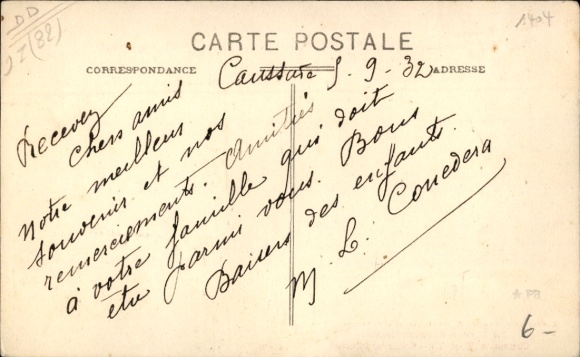 DD
(82)
1404
CARTE POSTALE
CORRESPONDANCE
ADRESSE
Caussade 5-9-32
Recevez
chers amis
notre meilleur
souvenir et nos
remerciements. Amitiés
à votre famille qui doit
etre parmi vous. Bons
Baisers des enfants.
M. L. Conedera
6-